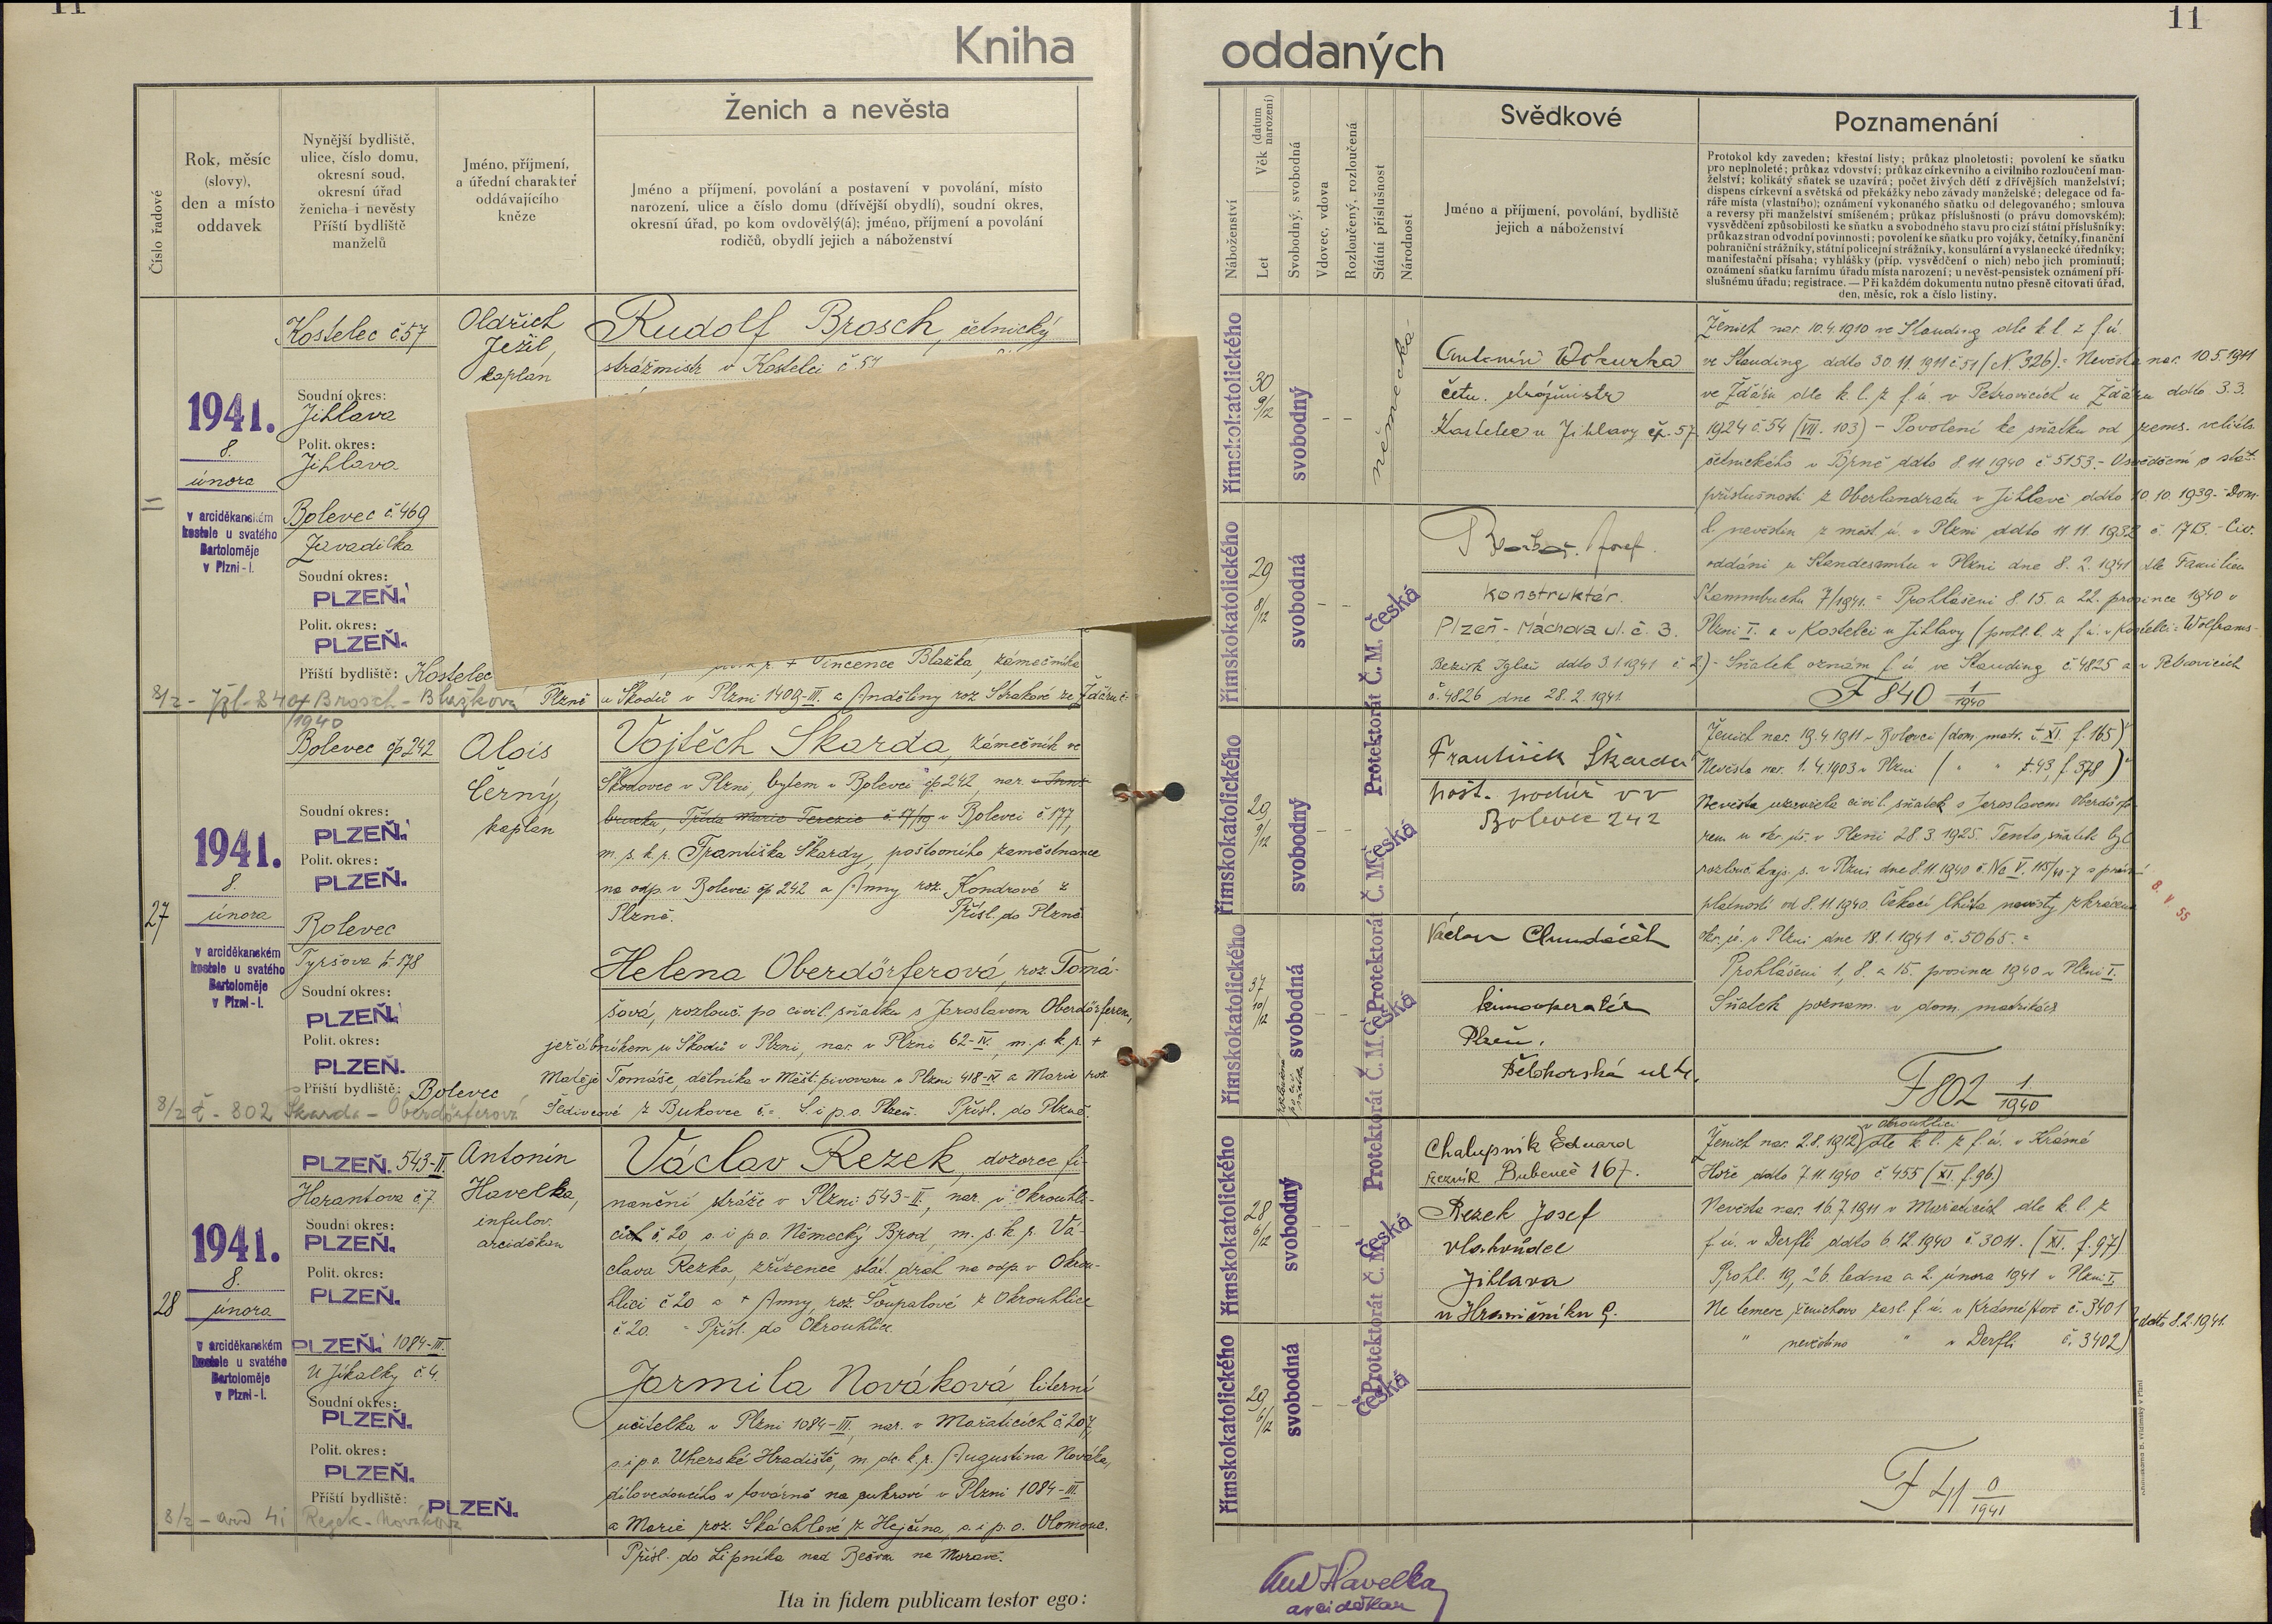 11
11
Kniha
oddaných
Číslo řadové
Rok, měsíc
(slovy),
den a místo
oddavek
Nynější bydliště,
ulice, číslo domu,
okresní soud,
okresní úřad
ženicha i nevěsty
Příští bydliště
manželů
Jméno, příjmení,
a úřední charakter
oddávajícího
kněze
Ženich a nevěsta
Jméno a příjmení, povolání a postavení v povolání, místo
narození, ulice a číslo domu (dřívější obydlí), soudní okres,
okresní úřad, po kom ovdovělý(á); jméno, příjmení a povolání
rodičů, obydlí jejich a náboženství
Náboženství
Let
Věk (datum narození)
Svobodný, svobodná
Vdovec, vdova
Rozloučený, rozloučená
Státní příslušnost
Národnost
Svědkové
Jméno a příjmení, povolání, bydliště
jejich a náboženství
Poznamenání
Protokol kdy zaveden; křestní listy; průkaz plnoletosti; povolení ke sňatku
pro neplnoleté; průkaz vdovství; průkaz církevního a civilního rozloučení man-
želství; kolikátý sňatek se uzavírá; počet živých dětí z dřívějších manželství;
dispens církevní a světská od překážky nebo závady manželské; delegace od fa-
ráře místa (vlastního); oznámení vykonaného sňatku od delegovaného; smlouva
a reversy při manželství smíšeném; průkaz příslušnosti (o právu domovském);
vysvědčení způsobilosti ke sňatku a svobodného stavu pro cizí státní příslušníky;
průkaz stran odvodní povinnosti; povolení ke sňatku pro vojáky, četníky, finanční
pohraniční strážníky, státní policejní strážníky, konsulární a vyslanecké úředníky;
manifestační přísaha; vyhlášky (příp. vysvědčení o nich) nebo jich prominutí;
oznámení sňatku farnímu úřadu místa narození; u nevěst-pensistek oznámení pří-
slušnému úřadu; registrace. — Při každém dokumentu nutno přesně citovati úřad,
den, měsíc, rok a číslo listiny.
1941.
8.
února
v arciděkanském
kostele u svatého
Bartoloměje
v Plzni-I.
Kostelec č. 57
Soudní okres:
Jihlava
Polit. okres:
Jihlava
Bolevec č. 469
Zavadilka
Soudní okres:
PLZEŇ.
Polit. okres:
PLZEŇ.
Příští bydliště: Kostelec
8/2 - Jhl - 840 Brosch - Blažková
/1940
Oldřich
Ježil,
kaplan
Rudolf Brosch, četnický
strážmistr v Kostelci č. 57
+ Vincence Blažka, zámečníka
Plzně u Škodů v Plzni 1409-III. a Anděliny roz. Strakové ze Žďáru č.
římskokatolického
30
9/12
svobodný
německá
římskokatolického
29
8/12
svobodná
Protektorát Č. M. česká
Antonín Wokurka
četn. strážmistr
Kostelec u Jihlavy čp. 57.
Josef.
konstruktér.
Plzeň - Máchova ul. č. 3.
Bezirk Iglau ddto 3.1.1941 č. 2) - Sňatek oznám. f. ú. ve Stauding č. 4825 a v Petrovicích
č. 4826 dne 28.2.1941.
Ženich nar. 10.4.1910 ve Stauding dle k. l. z f. ú.
ve Stauding ddto 30.11.1911 č. 51 (N. 326). = Nevěsta nar. 10.5.1911
ve Žďáru dle k. l. z f. ú. v Petrovicích u Žďáru ddto 3.3.
1924 č. 54 (VII. 103) - Povolení ke sňatku od zems. velitels.
četnického v Brně ddto 8.11.1940 č. 5153. - Osvědčení o stát.
příslušnosti z Oberlandratu v Jihlavě ddto 10.10.1939. - Dom.
l. nevěstin z měst. ú. v Plzni ddto 11.11.1932 č. 1713. - Civ.
oddáni u Standesamtu v Plzni dne 8.2.1941 dle Familien
Stammbuchu 7/1941. = Prohlášeni 8. 15. a 22. prosince 1940 v
Plzni I. a v Kostelci u Jihlavy (prohl. l. z f. ú. v Kostelci = Wolframs-
F 840 1/1940
27
1941.
8.
února
v arciděkanském
kostele u svatého
Bartoloměje
v Plzni-I.
Bolevec čp 242
Soudní okres:
PLZEŇ.
Polit. okres:
PLZEŇ.
Bolevec
Tyršova č. 578
Soudní okres:
PLZEŇ.
Polit. okres:
PLZEŇ.
Příští bydliště: Bolevec
8/2 č - 802 Škarda - Oberdörferová
Alois
Černý,
kaplan
Vojtěch Škarda, zámečník ve
Škodovce v Plzni, bytem v Bolevci čp. 242, nar. v Inns-
brucku, Třída Marie Terezie č. 17/19 v Bolevci č. 177,
m. s. k. p. Františka Škardy, poštovního zaměstnance
na odp. v Bolevci čp 242 a Anny roz. Kondrové z
Plzně. Přísl. do Plzně
Helena Oberdörferová, roz. Tomá-
šová, rozlouč. po civil. sňatku s Jaroslavem Oberdörferem,
jeřábníkem u Škodů v Plzni, nar. v Plzni 62-IV., m. p. k. p. +
Matěje Tomáše, dělníka v Měšt. pivovaru v Plzni 418-IV a Marie roz.
Šedivcové z Bukovce č. =. S. i p. o. Plzeň. Přísl. do Plzně.
římskokatolického
29
9/12
svobodný
Protektorát Č. M. česká
římskokatolického
37
10/12
svobodná
Protektorát Č. M. česká
František Škarda
pošt. podúř v v
Bolevec 242
Václav Chundáček
kinooperatér
Plzeň,
Bělohorská ul.
Ženich nar. 19.4.1911 v Bolevci (dom. matr. t. XI. f. 165)
Nevěsta nar. 1.4.1903 v Plzni ( " " t. 43, f. 378)
Nevěsta uzavřela civil. sňatek s Jaroslavem Oberdörfe-
rem u okr. úř. v Plzni 28.3.1925. Tento sňatek byl
rozlouč. kraj. s. v Plzni dne 8.11.1940 č. Nc V. 115/40-7 s právní
platností od 8.11.1940. Čekací lhůta nevěsty zkrácena
okr. ú. v Plzni dne 18.1.1941 č. 5065. =
Prohlášeni 1., 8. a 15. prosince 1940 v Plzni I.
Sňatek poznam. v dom. matrikách
8. V 55
F 802 1./1940
28
1941.
8.
února
v arciděkanském
kostele u svatého
Bartoloměje
v Plzni-I.
PLZEŇ. 543-II.
Harantova č. 7
Soudní okres:
PLZEŇ.
Polit. okres:
PLZEŇ.
PLZEŇ. 1084-III.
U Jíkalky č. 4.
Soudní okres:
PLZEŇ.
Polit. okres:
PLZEŇ.
Příští bydliště: PLZEŇ.
8/2 - 41 Rezek - Nováková
Antonín
Havelka,
infulov.
arciděkan
Václav Rezek, dozorce fi-
nanční stráže v Plzni 543-II., nar. v Okrouhli-
cích č. 20, s. i p. o. Německý Brod, m. s. k. p. Vá-
clava Rezka, zřízence stát. drah na odp. v Okrou-
hlici č. 20 a + Anny, roz. Šoupalové z Okrouhlice
č. 20. = Přísl. do Okrouhlice
Jarmila Nováková, literní
učitelka v Plzni 1084-III., nar. v Mařaticích č. 207,
s. i p. o. Uherské Hradiště, m. dc. k. p. Augustina Nováka,
dílovedoucího v továrně na cukroví v Plzni 1084-III.
a Marie roz. Skáchlové z Hejčína, s. i p. o. Olomouc.
Přísl. do Lipníka nad Bečvou na Moravě.
římskokatolického
28
6/12
svobodný
Protektorát Č. M. česká
římskokatolického
29
6/12
svobodná
Protektorát Č. M. česká
Chalupník Eduard
řezník Bubeneč 167.
Rezek Josef
vlakvůdce
Jihlava
u Hraničníku 9.
Ženich nar. 2.8.1912 v Okrouhlici dle k. l. z f. ú. v Krásné
Hoře ddto 7.11.1940 č. 455 (XI. f. 96.)
Nevěsta nar. 16.7.1911 v Mařaticích dle k. l. z
f. ú. v Derfli ddto 6.12.1940 č. 3011. (XI. f. 97)
Prohl. 19., 26. ledna a 2. února 1941 v Plzni I.
Ne temere ženichovo zasl. f. ú. v Krásné Hoře č. 3401
" nevěstino " v Derfli č. 3402)
ddto 8.2.1941.
F 41 0/1941
Ita in fidem publicam testor ego:
Ant Havelka
arciděkan